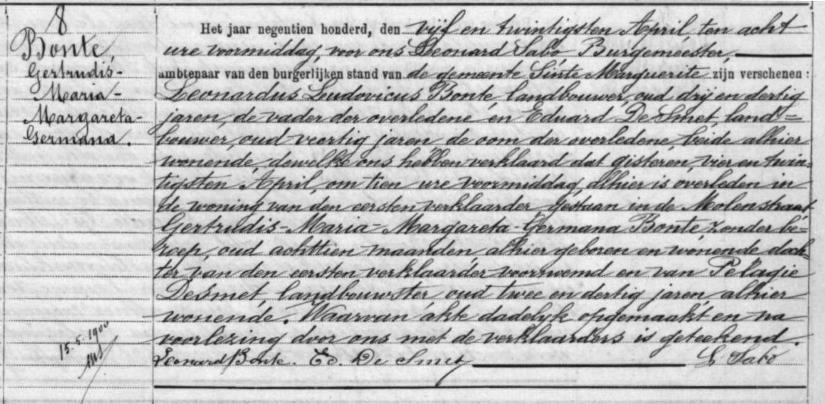 8
Bonte,
Gertrudis-
Maria-
Margareta-
Germana.
15.5.1900
Het jaar negentien honderd, den vijf en twintigsten April, ten acht
ure voormiddag, voor ons Leonard Sabo Burgemeester,
ambtenaar van den burgerlijken stand van de gemeente Sinte Marguerite, zijn verschenen:
Leonardus Ludovicus Bonte, landbouwer, oud drij en dertig
jaren, de vader der overledene en Eduard De Smet, land=
bouwer, oud veertig jaren de oom der overledene, beide alhier
wonende, dewelke ons hebben verklaard dat gisteren, vier en twin-
tigsten April, om tien ure voormiddag, alhier is overleden in
de woning van den eersten verklaarder gestaan in de Molenstraat
Gertrudis-Maria-Margareta-Germana Bonte zonder be-
roep, oud achttien maanden alhier geboren en wonende doch-
ter van den eersten verklaarder voornoemd en van Pelagie
Desmet, landbouwster, oud twee en dertig jaren, alhier
wonende. Waarvan akte dadelyk opgemaakt en na
voorlezing door ons met de verklaarders is geteekend.
Leonard Bonte. Ed. De Smet L Sabo